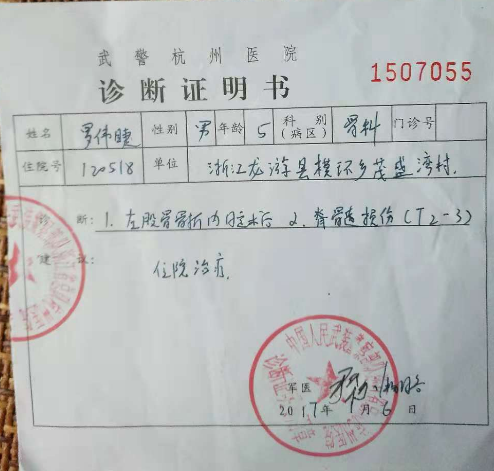 武警杭州医院
诊断证明书
1507055
姓名 罗伟睫 性别 男 年龄 5 科别(病区) 骨科 门诊号
住院号 120518 单位 浙江龙游县横环乡茂盛湾村.
诊断: 1. 左股骨骨折内固定术后 2. 脊骨遗损伤(T2-3)
建议: 住院治疗.
军医
2017年 月6日